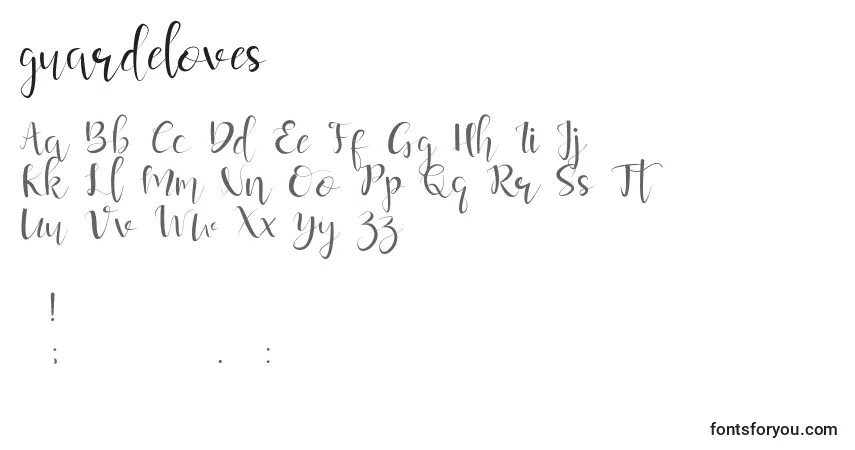 guardeloves
Aa Bb Cc Dd Ee Ff Gg Hh Ii Jj
Kk Ll Mm Nn Oo Pp Qq Rr Ss Tt
Uu Vv Ww Xx Yy Zz
!
; . :
fontsforyou.com